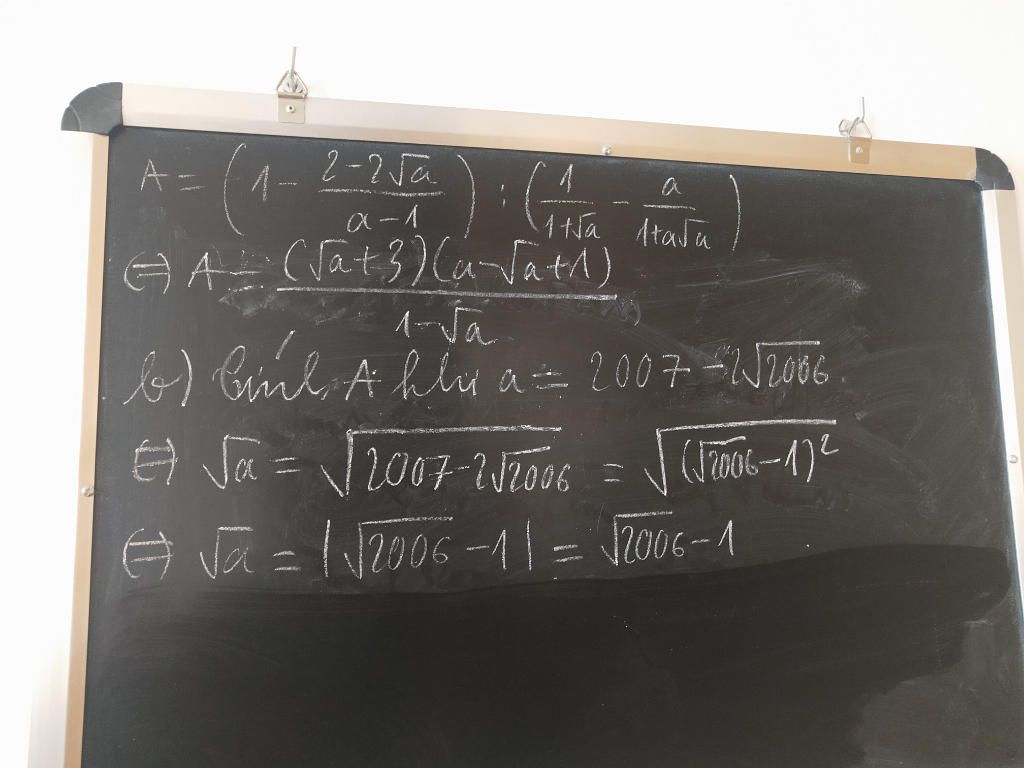 A = (1 - (2-2√a)/(a-1)) : (1/(1+√a) - a/(1+a√a))
⇔ A = (√a+3)(a-√a+1)/(1-√a)
b) Tính A khi a = 2007 - 2√2006
⇔ √a = √(2007-2√2006) = √((√2006-1)²)
⇔ √a = |√2006 - 1| = √2006 - 1